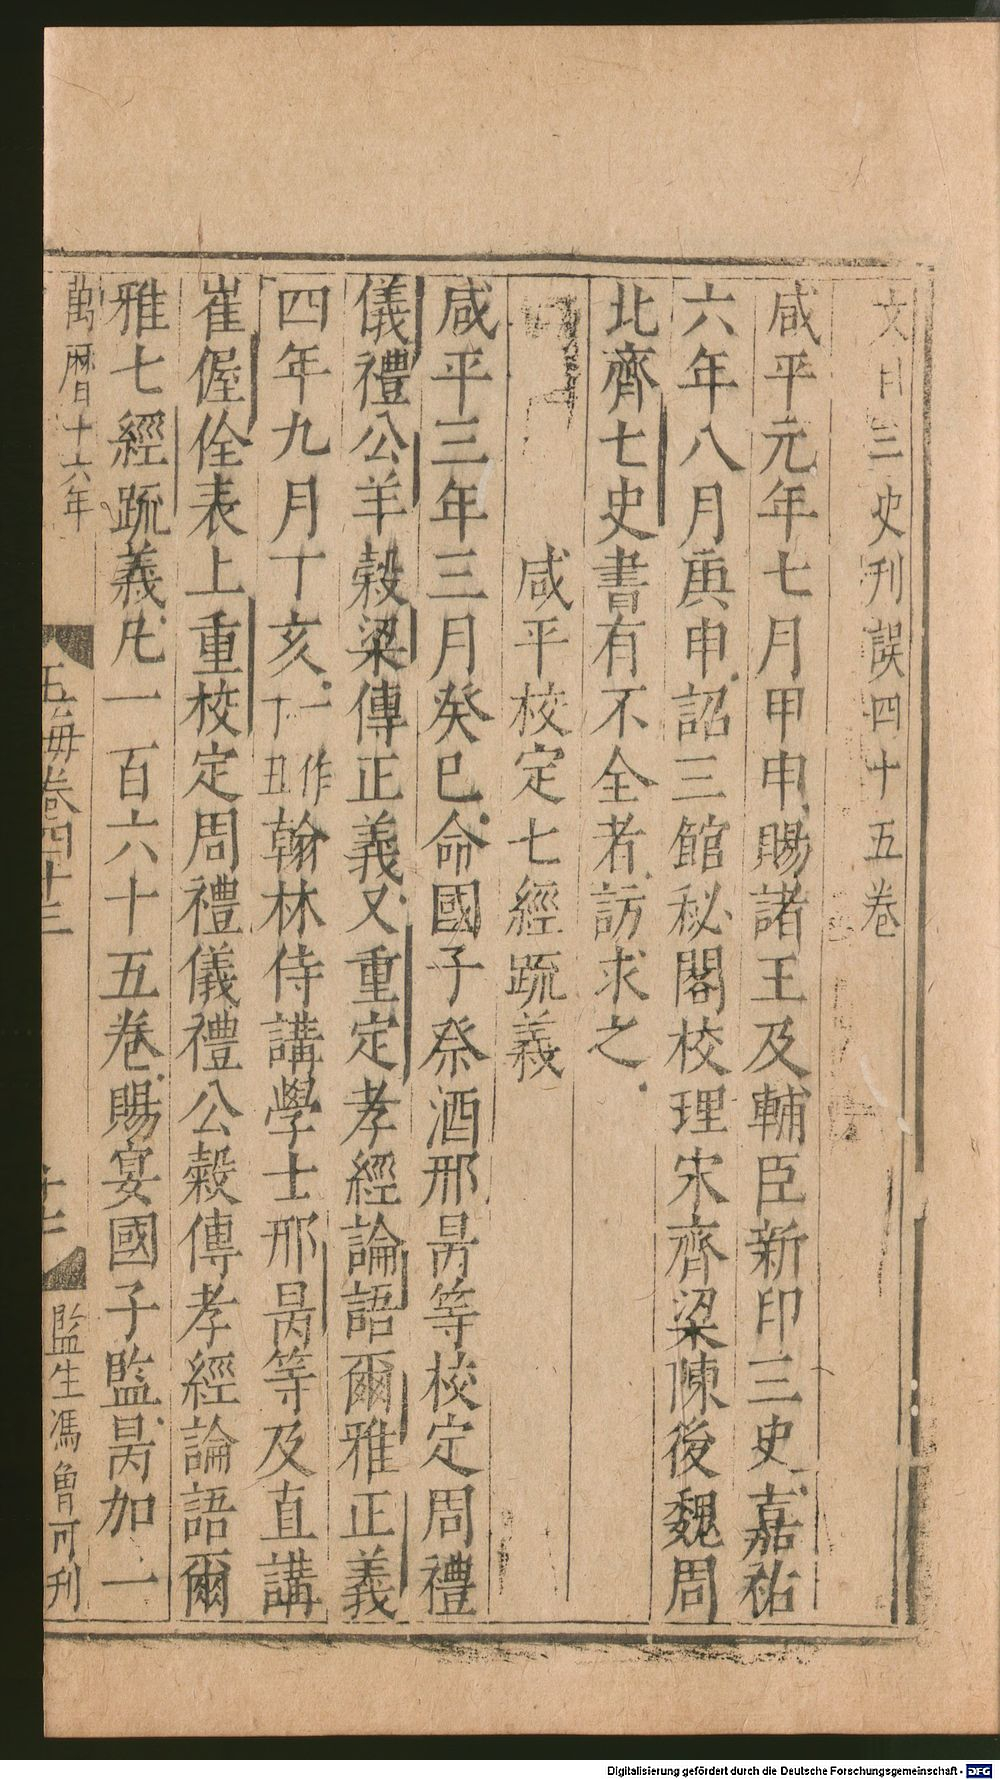 三史刋誤四十五卷
咸平元年七月甲申賜諸王及輔臣新印三史嘉祐
六年八月庚申詔三館秘閣校理宋齊梁陳後魏周
北齊七史書有不全者訪求之
咸平校定七經疏義
咸平三年三月癸巳命國子祭酒邢昺等校定周禮
儀禮公羊穀梁傳正義又重定孝經論語爾雅正義
四年九月丁亥一作丁丑翰林侍講學士邢昺等及直講
崔偓佺表上重校定周禮儀禮公穀傳孝經論語爾
雅七經疏義凡一百六十五卷賜宴國子監昺加一
萬曆十六年
玉海卷四十三
監生馮曾可刋
Digitalisierung gefördert durch die Deutsche Forschungsgemeinschaft - DFG